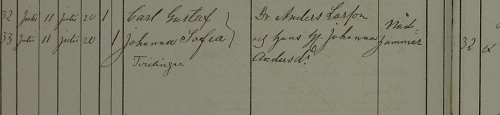 32 Juli 11 Juli 20 1 Carl Gustaf Dr. Anders Larson Näd-
33 Juli 11 Juli 20 1 Johanna Sofia och hans H. Johanna hammar 32
Tvillingar Andersdr.